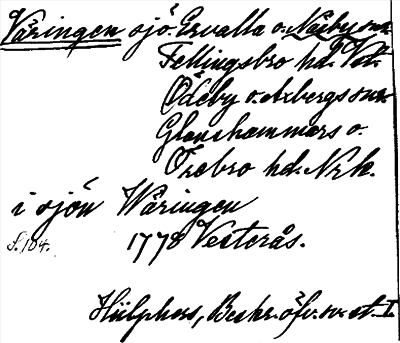 Väringen sjö. Ervalla o. Näsby snr
Fellingsbro hd. Vstm.
Ödeby o. Axbergs snr
Glanshammars o.
Örebro hd. Nrk.
i sjön Wäringen
s. 104. 1778 Vesterås.
Hülphers, Beskr. öfv. sv. st. I